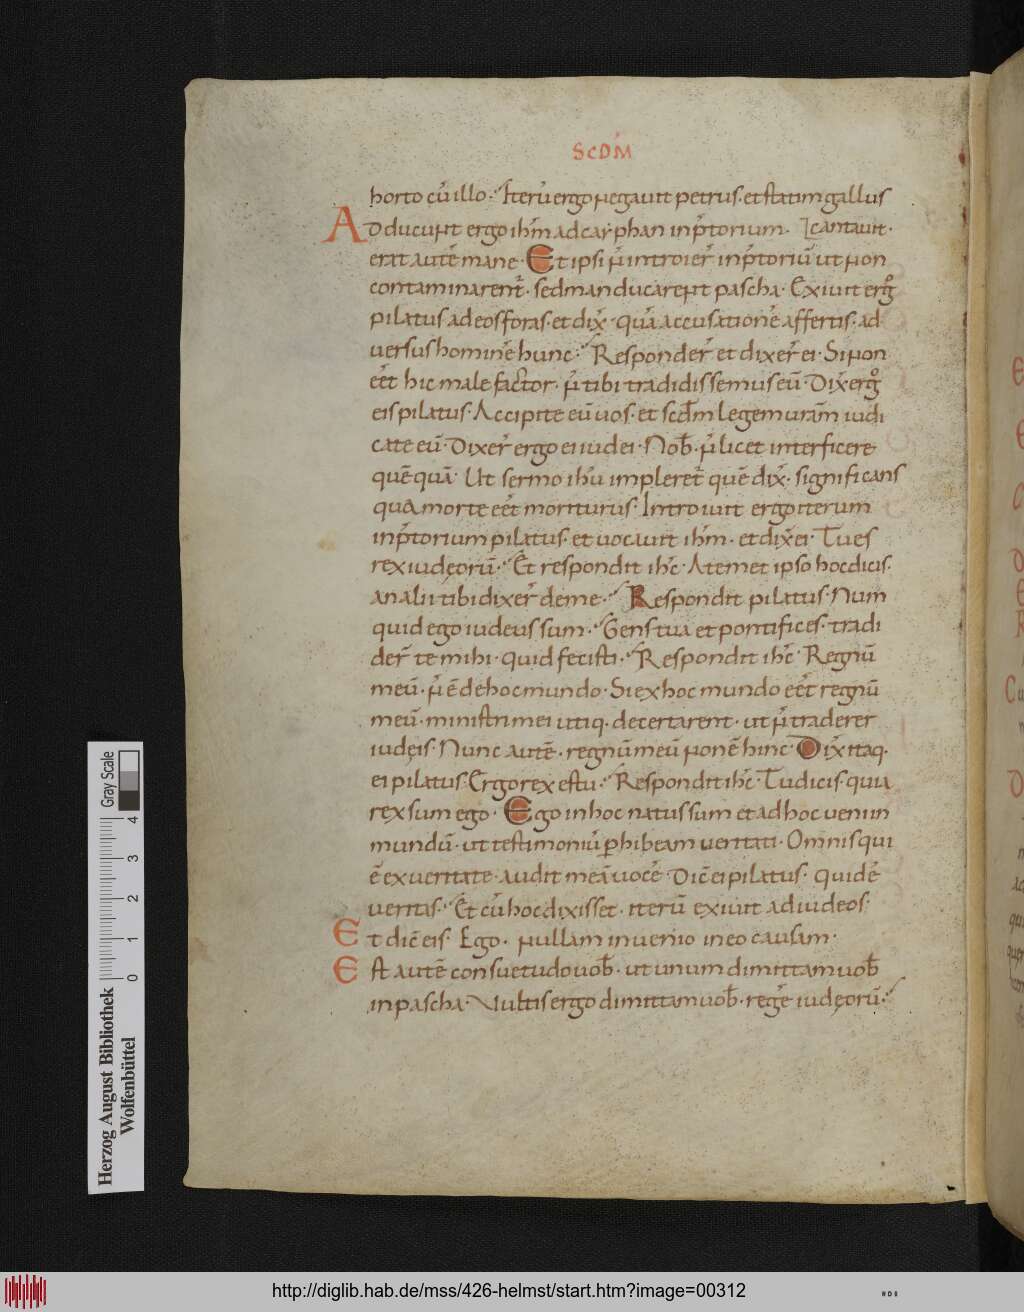 SCDM̅
horto cū illo. Iterū ergo negauit petrus. et statim gallus
Adducunt ergo ih̄m ad caiphan in p̄torium. cantauit.
erat autē mane. Et ipsi ñ introier̄ in p̄toriū ut non
contaminarent̄. sed manducarent pascha. Exiuit erg̊
pilatus ad eos foras. et dix̄. quā accusationē affertis. ad
uersus hominē hunc. Responder̄ et dixer̄ ei. Si non
eēt hic malefactor. ñ tibi tradidissemus eū. Dix̄ erg̊
eis pilatus. Accipite eū uos. et scdm̄ legem urām iudi
cate eū. Dixer̄ ergo ei iudei. Nob̄. ñ licet interficere
quēquā. Ut sermo ih̄u impleret̄ quē dix̄. significans
qua morte eēt moriturus. Introiuit ergo iterum
in p̄torium pilatus. et uocauit ih̄m. et dix̄ ei. Tu es
rex iudęorū. Et respondit ih̄c. A temet ipso hoc dicis.
an alii tibi dixer̄ de me. Respondit pilatus. Num
quid ego iudeus sum. Gens tua et pontifices. tradi
der̄ te mihi. quid fecisti. Respondit ih̄c. Regnū
meū. ñ ē de hoc mundo. Si ex hoc mundo eēt regnū
meū. ministri mei utiq. decertarent. ut ñ traderer
iudęis. Nunc autē. regnū meū non ē hinc. Dix̄ itaq.
ei pilatus. Ergo rex es tu. Respondit ih̄c. Tu dicis. quia
rex sum ego. Ego in hoc natus sum et ad hoc ueni in
mundū. ut testimoniū ꝑhibeam ueritati. Omnis qui
ē ex ueritate. audit meā uocē. Dic̄ ei pilatus. quid ē
ueritas. Et cū hoc dixisset. iterū exiuit ad iudeos.
Et dic̄ eis. Ego. nullam inuenio in eo causam.
Est autē consuetudo uob̄. ut unum dimittam uob̄
in pascha. Vultis ergo dimittam uob̄. regē iudęorū.
Gray Scale
4
3
2
1
0
Herzog August Bibliothek
Wolfenbüttel
http://diglib.hab.de/mss/426-helmst/start.htm?image=00312